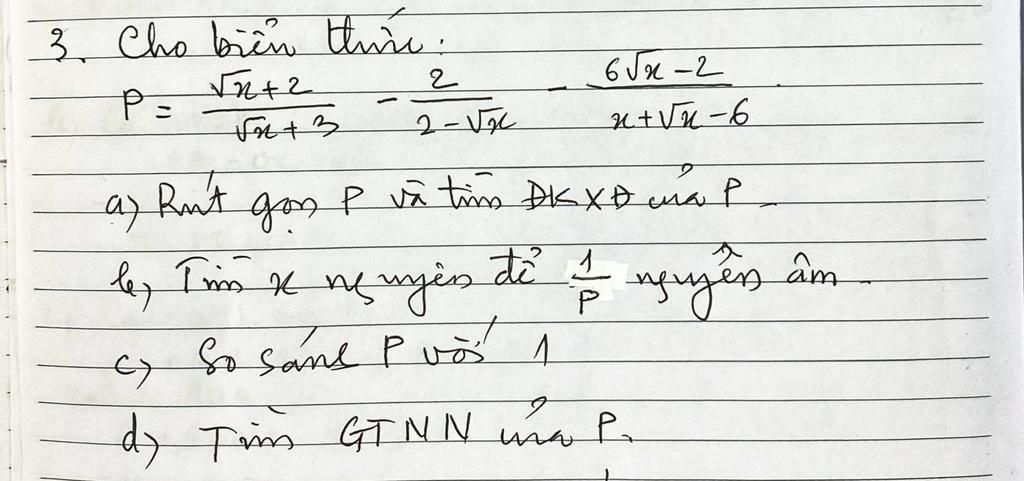 3. Cho biển thức:
P = \frac{\sqrt{x}+2}{\sqrt{x}+3} - \frac{2}{2-\sqrt{x}} - \frac{6\sqrt{x}-2}{x+\sqrt{x}-6}
a) Rút gọn P và tìm ĐKXĐ của P
b) Tìm x nguyên để \frac{1}{P} nguyên âm.
c) So sánh P với 1
d) Tìm GTNN của P.